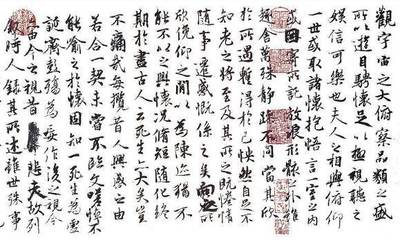 觀宇宙之大俯察品類之盛
所以遊目騁懷足以極視聽之
娛信可樂也夫人之相與俯仰
一世或取諸懷抱悟言一室之內
或因寄所託放浪形骸之外雖
趣舍萬殊靜躁不同當其欣
於所遇暫得於己怏然自足不
知老之將至及其所之既惓情
隨事遷感慨係之矣向之所
欣俛仰之閒以為陳迹猶不
能不以之興懷況脩短隨化終
期於盡古人云死生亦大矣豈
不痛哉每攬昔人興感之由
若合一契未嘗不臨文嗟悼不
能喻之於懷固知一死生為虛
誕齊彭殤為妄作後之視今
亦由今之視昔悲夫故列
敘時人錄其所述雖世殊事